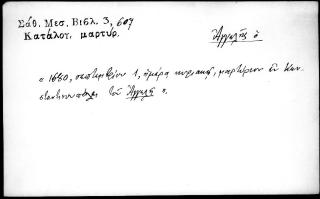 Σάθ. Μεσ. Βιβλ. 3, 607
Κατάλογ. μαρτυρ.
Ἀγγελῆς ὁ
α 1680, σεπτεμβρίου 1, ἡμέρα κυριακῇ, μαρτύριον ἐν Κων-
σταντινουπόλει τοῦ Ἀγγελῆ ο.